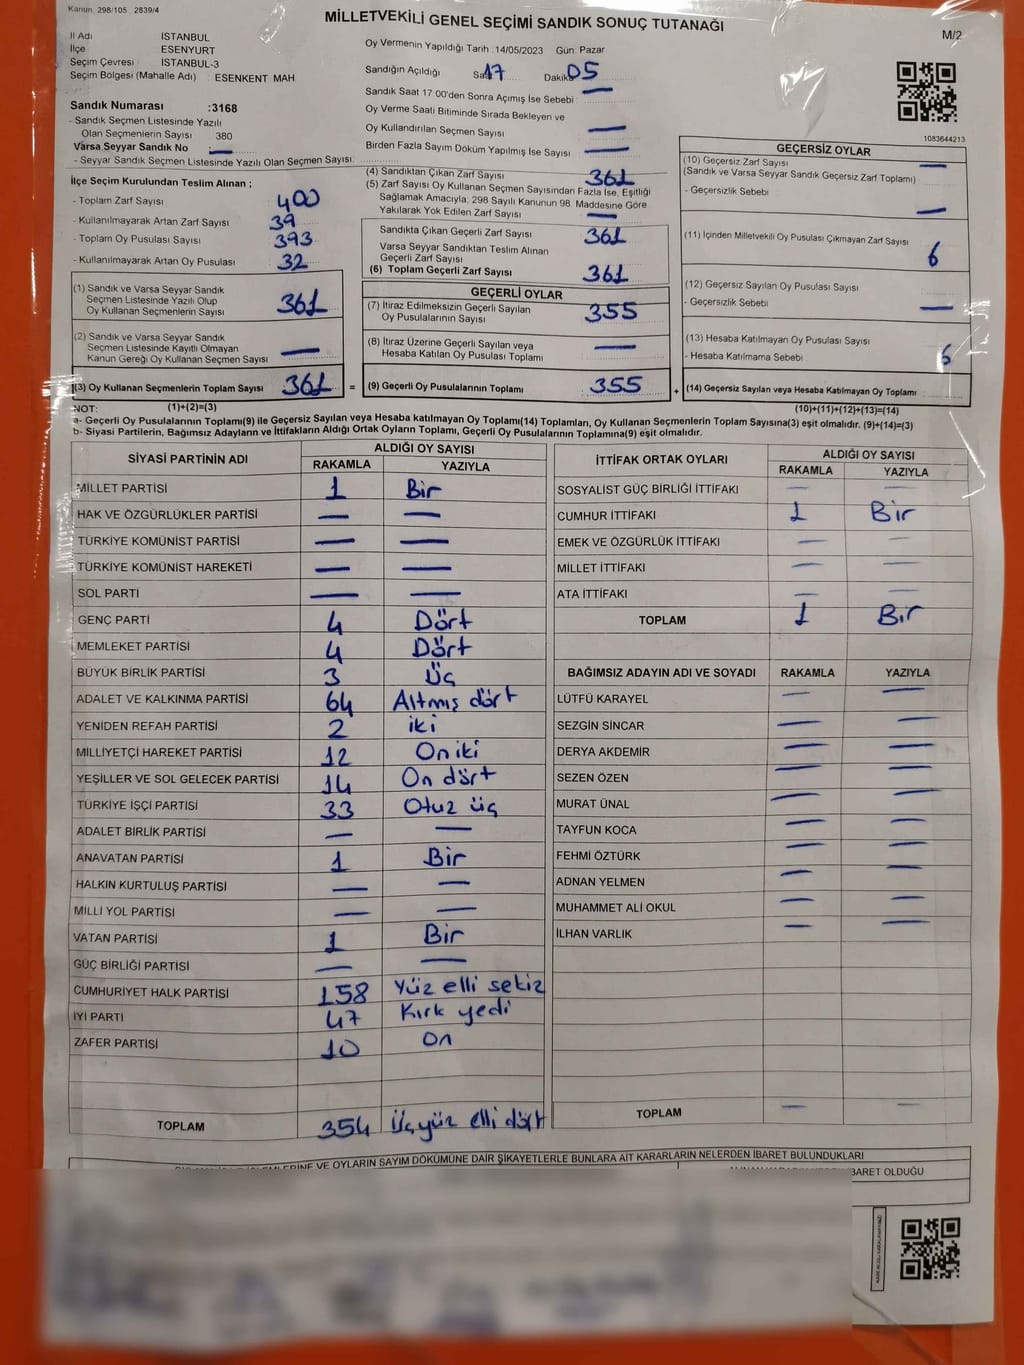 Kanun: 298/105 2839/4
MİLLETVEKİLİ GENEL SEÇİMİ SANDIK SONUÇ TUTANAĞI
M/2
İl Adı İSTANBUL
İlçe ESENYURT
Seçim Çevresi İSTANBUL-3
Seçim Bölgesi (Mahalle Adı) : ESENKENT MAH
Sandık Numarası :3168
- Sandık Seçmen Listesinde Yazılı
Olan Seçmenlerin Sayısı 380
Varsa Seyyar Sandık No —
- Seyyar Sandık Seçmen Listesinde Yazılı Olan Seçmen Sayısı:
Oy Vermenin Yapıldığı Tarih : 14/05/2023 Gün: Pazar
Sandığın Açıldığı Saat 17 Dakika 05
Sandık Saat 17:00'den Sonra Açımış İse Sebebi —
Oy Verme Saati Bitiminde Sırada Bekleyen ve
Oy Kullandırılan Seçmen Sayısı —
Birden Fazla Sayım Döküm Yapılmış İse Sayısı —
1083644213
İlçe Seçim Kurulundan Teslim Alınan ;
- Toplam Zarf Sayısı 400
- Kullanılmayarak Artan Zarf Sayısı 39
- Toplam Oy Pusulası Sayısı 393
- Kullanılmayarak Artan Oy Pusulası 32
(1) Sandık ve Varsa Seyyar Sandık
Seçmen Listesinde Yazılı Olup
Oy Kullanan Seçmenlerin Sayısı 361
(2) Sandık ve Varsa Seyyar Sandık
Seçmen Listesinde Kayıtlı Olmayan
Kanun Gereği Oy Kullanan Seçmen Sayısı —
(3) Oy Kullanan Seçmenlerin Toplam Sayısı 361 =
(4) Sandıktan Çıkan Zarf Sayısı 361
(5) Zarf Sayısı Oy Kullanan Seçmen Sayısından Fazla İse, Eşitliği
Sağlamak Amacıyla, 298 Sayılı Kanunun 98. Maddesine Göre
Yakılarak Yok Edilen Zarf Sayısı —
Sandıkta Çıkan Geçerli Zarf Sayısı 361
Varsa Seyyar Sandıktan Teslim Alınan
Geçerli Zarf Sayısı
(6) Toplam Geçerli Zarf Sayısı 361
GEÇERLİ OYLAR
(7) İtiraz Edilmeksizin Geçerli Sayılan
Oy Pusulalarının Sayısı 355
(8) İtiraz Üzerine Geçerli Sayılan veya
Hesaba Katılan Oy Pusulası Toplamı —
(9) Geçerli Oy Pusulalarının Toplamı 355 +
GEÇERSİZ OYLAR
(10) Geçersiz Zarf Sayısı —
(Sandık ve Varsa Seyyar Sandık Geçersiz Zarf Toplamı)
- Geçersizlik Sebebi —
(11) İçinden Milletvekili Oy Pusulası Çıkmayan Zarf Sayısı 6
(12) Geçersiz Sayılan Oy Pusulası Sayısı
- Geçersizlik Sebebi —
(13) Hesaba Katılmayan Oy Pusulası Sayısı
- Hesaba Katılmama Sebebi 6
(14) Geçersiz Sayılan veya Hesaba Katılmayan Oy Toplamı
NOT: (1)+(2)=(3) (10)+(11)+(12)+(13)=(14)
a- Geçerli Oy Pusulalarının Toplamı(9) ile Geçersiz Sayılan veya Hesaba katılmayan Oy Toplamı(14) Toplamları, Oy Kullanan Seçmenlerin Toplam Sayısına(3) eşit olmalıdır. (9)+(14)=(3)
b- Siyasi Partilerin, Bağımsız Adayların ve İttifakların Aldığı Ortak Oyların Toplamı, Geçerli Oy Pusulalarının Toplamına(9) eşit olmalıdır.
SİYASİ PARTİNİN ADI ALDIĞI OY SAYISI
RAKAMLA YAZIYLA
MİLLET PARTİSİ 1 Bir
HAK VE ÖZGÜRLÜKLER PARTİSİ — —
TÜRKİYE KOMÜNİST PARTİSİ — —
TÜRKİYE KOMÜNİST HAREKETİ — —
SOL PARTİ — —
GENÇ PARTİ 4 Dört
MEMLEKET PARTİSİ 4 Dört
BÜYÜK BİRLİK PARTİSİ 3 Üç
ADALET VE KALKINMA PARTİSİ 64 Altmış dört
YENİDEN REFAH PARTİSİ 2 iki
MİLLİYETÇİ HAREKET PARTİSİ 12 On iki
YEŞİLLER VE SOL GELECEK PARTİSİ 14 On dört
TÜRKİYE İŞÇİ PARTİSİ 33 Otuz üç
ADALET BİRLİK PARTİSİ — —
ANAVATAN PARTİSİ 1 Bir
HALKIN KURTULUŞ PARTİSİ — —
MİLLİ YOL PARTİSİ — —
VATAN PARTİSİ 1 Bir
GÜÇ BİRLİĞİ PARTİSİ — —
CUMHURİYET HALK PARTİSİ 158 Yüz elli sekiz
İYİ PARTİ 47 Kırk yedi
ZAFER PARTİSİ 10 On
TOPLAM 354 Üçyüz elli dört
İTTİFAK ORTAK OYLARI ALDIĞI OY SAYISI
RAKAMLA YAZIYLA
SOSYALİST GÜÇ BİRLİĞİ İTTİFAKI — —
CUMHUR İTTİFAKI 1 Bir
EMEK VE ÖZGÜRLÜK İTTİFAKI — —
MİLLET İTTİFAKI — —
ATA İTTİFAKI — —
TOPLAM 1 Bir
BAĞIMSIZ ADAYIN ADI VE SOYADI RAKAMLA YAZIYLA
LÜTFÜ KARAYEL — —
SEZGİN SİNCAR — —
DERYA AKDEMİR — —
SEZEN ÖZEN — —
MURAT ÜNAL — —
TAYFUN KOCA — —
FEHMİ ÖZTÜRK — —
ADNAN YELMEN — —
MUHAMMET ALİ OKUL — —
İLHAN VARLIK — —
TOPLAM — —
VE OYLARIN SAYIM DÖKÜMÜNE DAİR ŞİKAYETLERLE BUNLARA AİT KARARLARIN NELERDEN İBARET BULUNDUKLARI
İBARET OLDUĞU